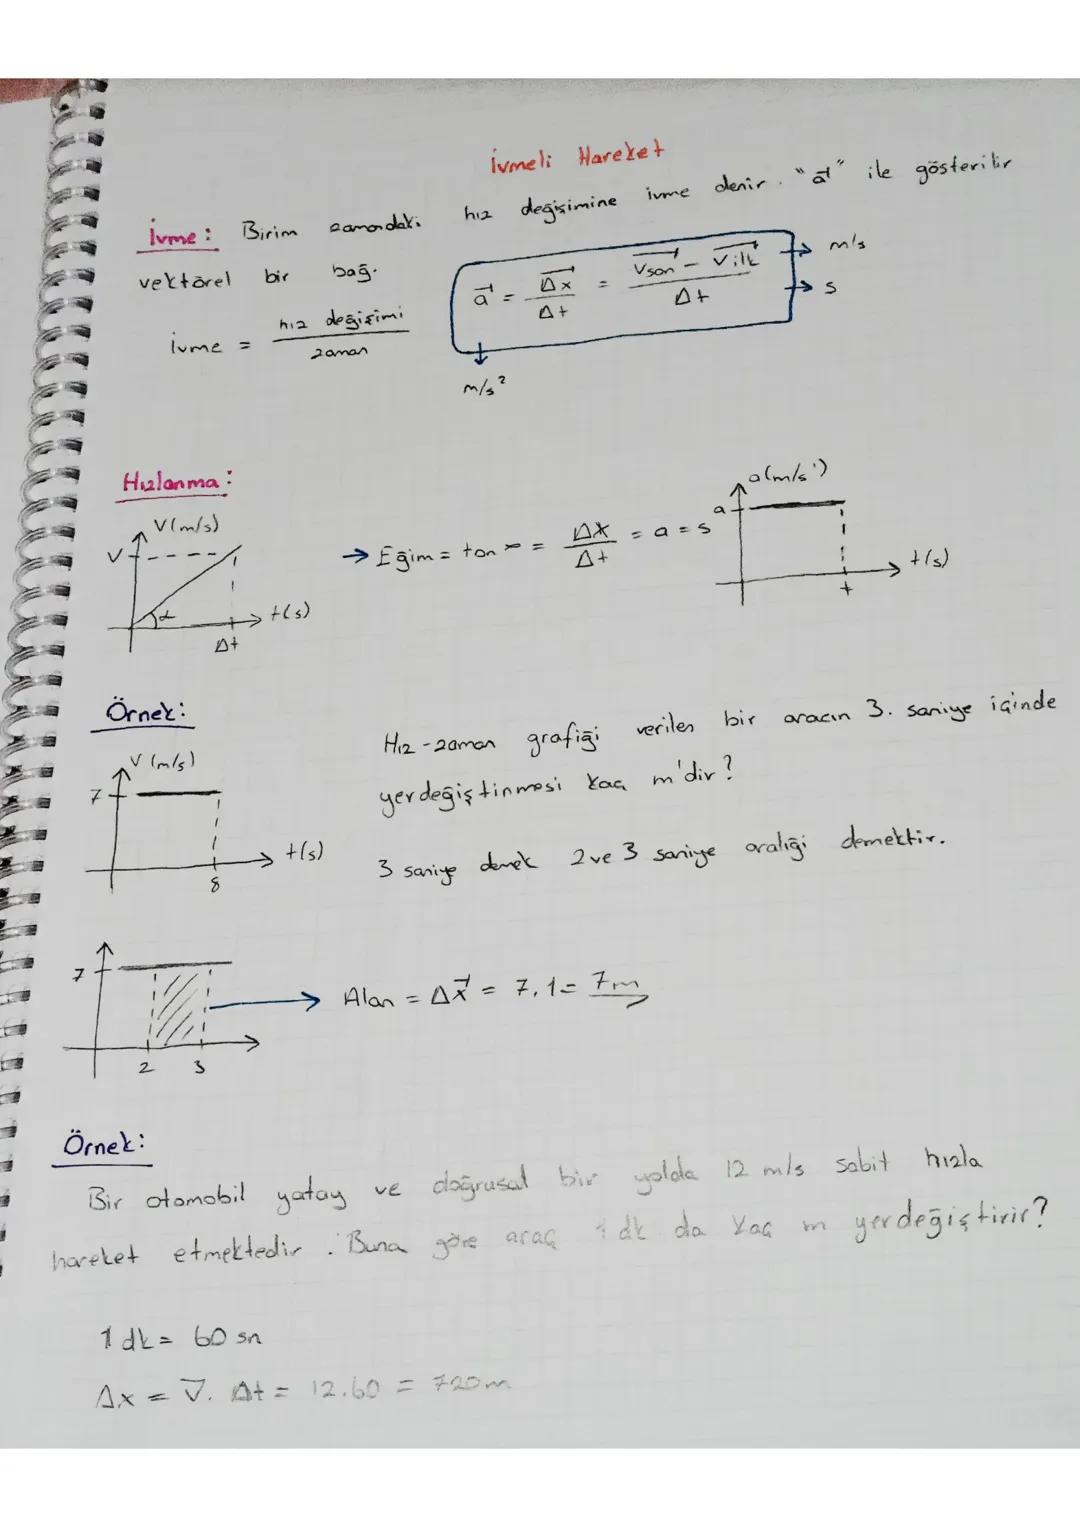 İvmeli Hareket
İvme: Birim zamandaki hız değişimine ivme denir. "a⃗" ile gösterilir
vektörel bir bağ.
ivme = hız değişimi / zaman
a⃗ = Δx⃗ / Δt = V⃗son - V⃗ilk / Δt
m/s
s
m/s²
Hızlanma:
V(m/s)
V
α
t(s)
Δt
→ Eğim = tan ∝ = ΔX / Δt = a = s
a(m/s²)
a
t(s)
t
Örnek:
V (m/s)
7
t(s)
8
Hız-zaman grafiği verilen bir aracın 3. saniye içinde
yerdeğiştirmesi kaç m'dir?
3 saniye demek 2 ve 3 saniye aralığı demektir.
7
2 3
Alan = Δx⃗ = 7.1 = 7m
Örnek:
Bir otomobil yatay ve doğrusal bir yolda 12 m/s sabit hızla
hareket etmektedir. Buna göre araç 1 dk da kaç m yerdeğiştirir?
1 dk = 60 sn
Δx = V. Δt = 12.60 = 720m